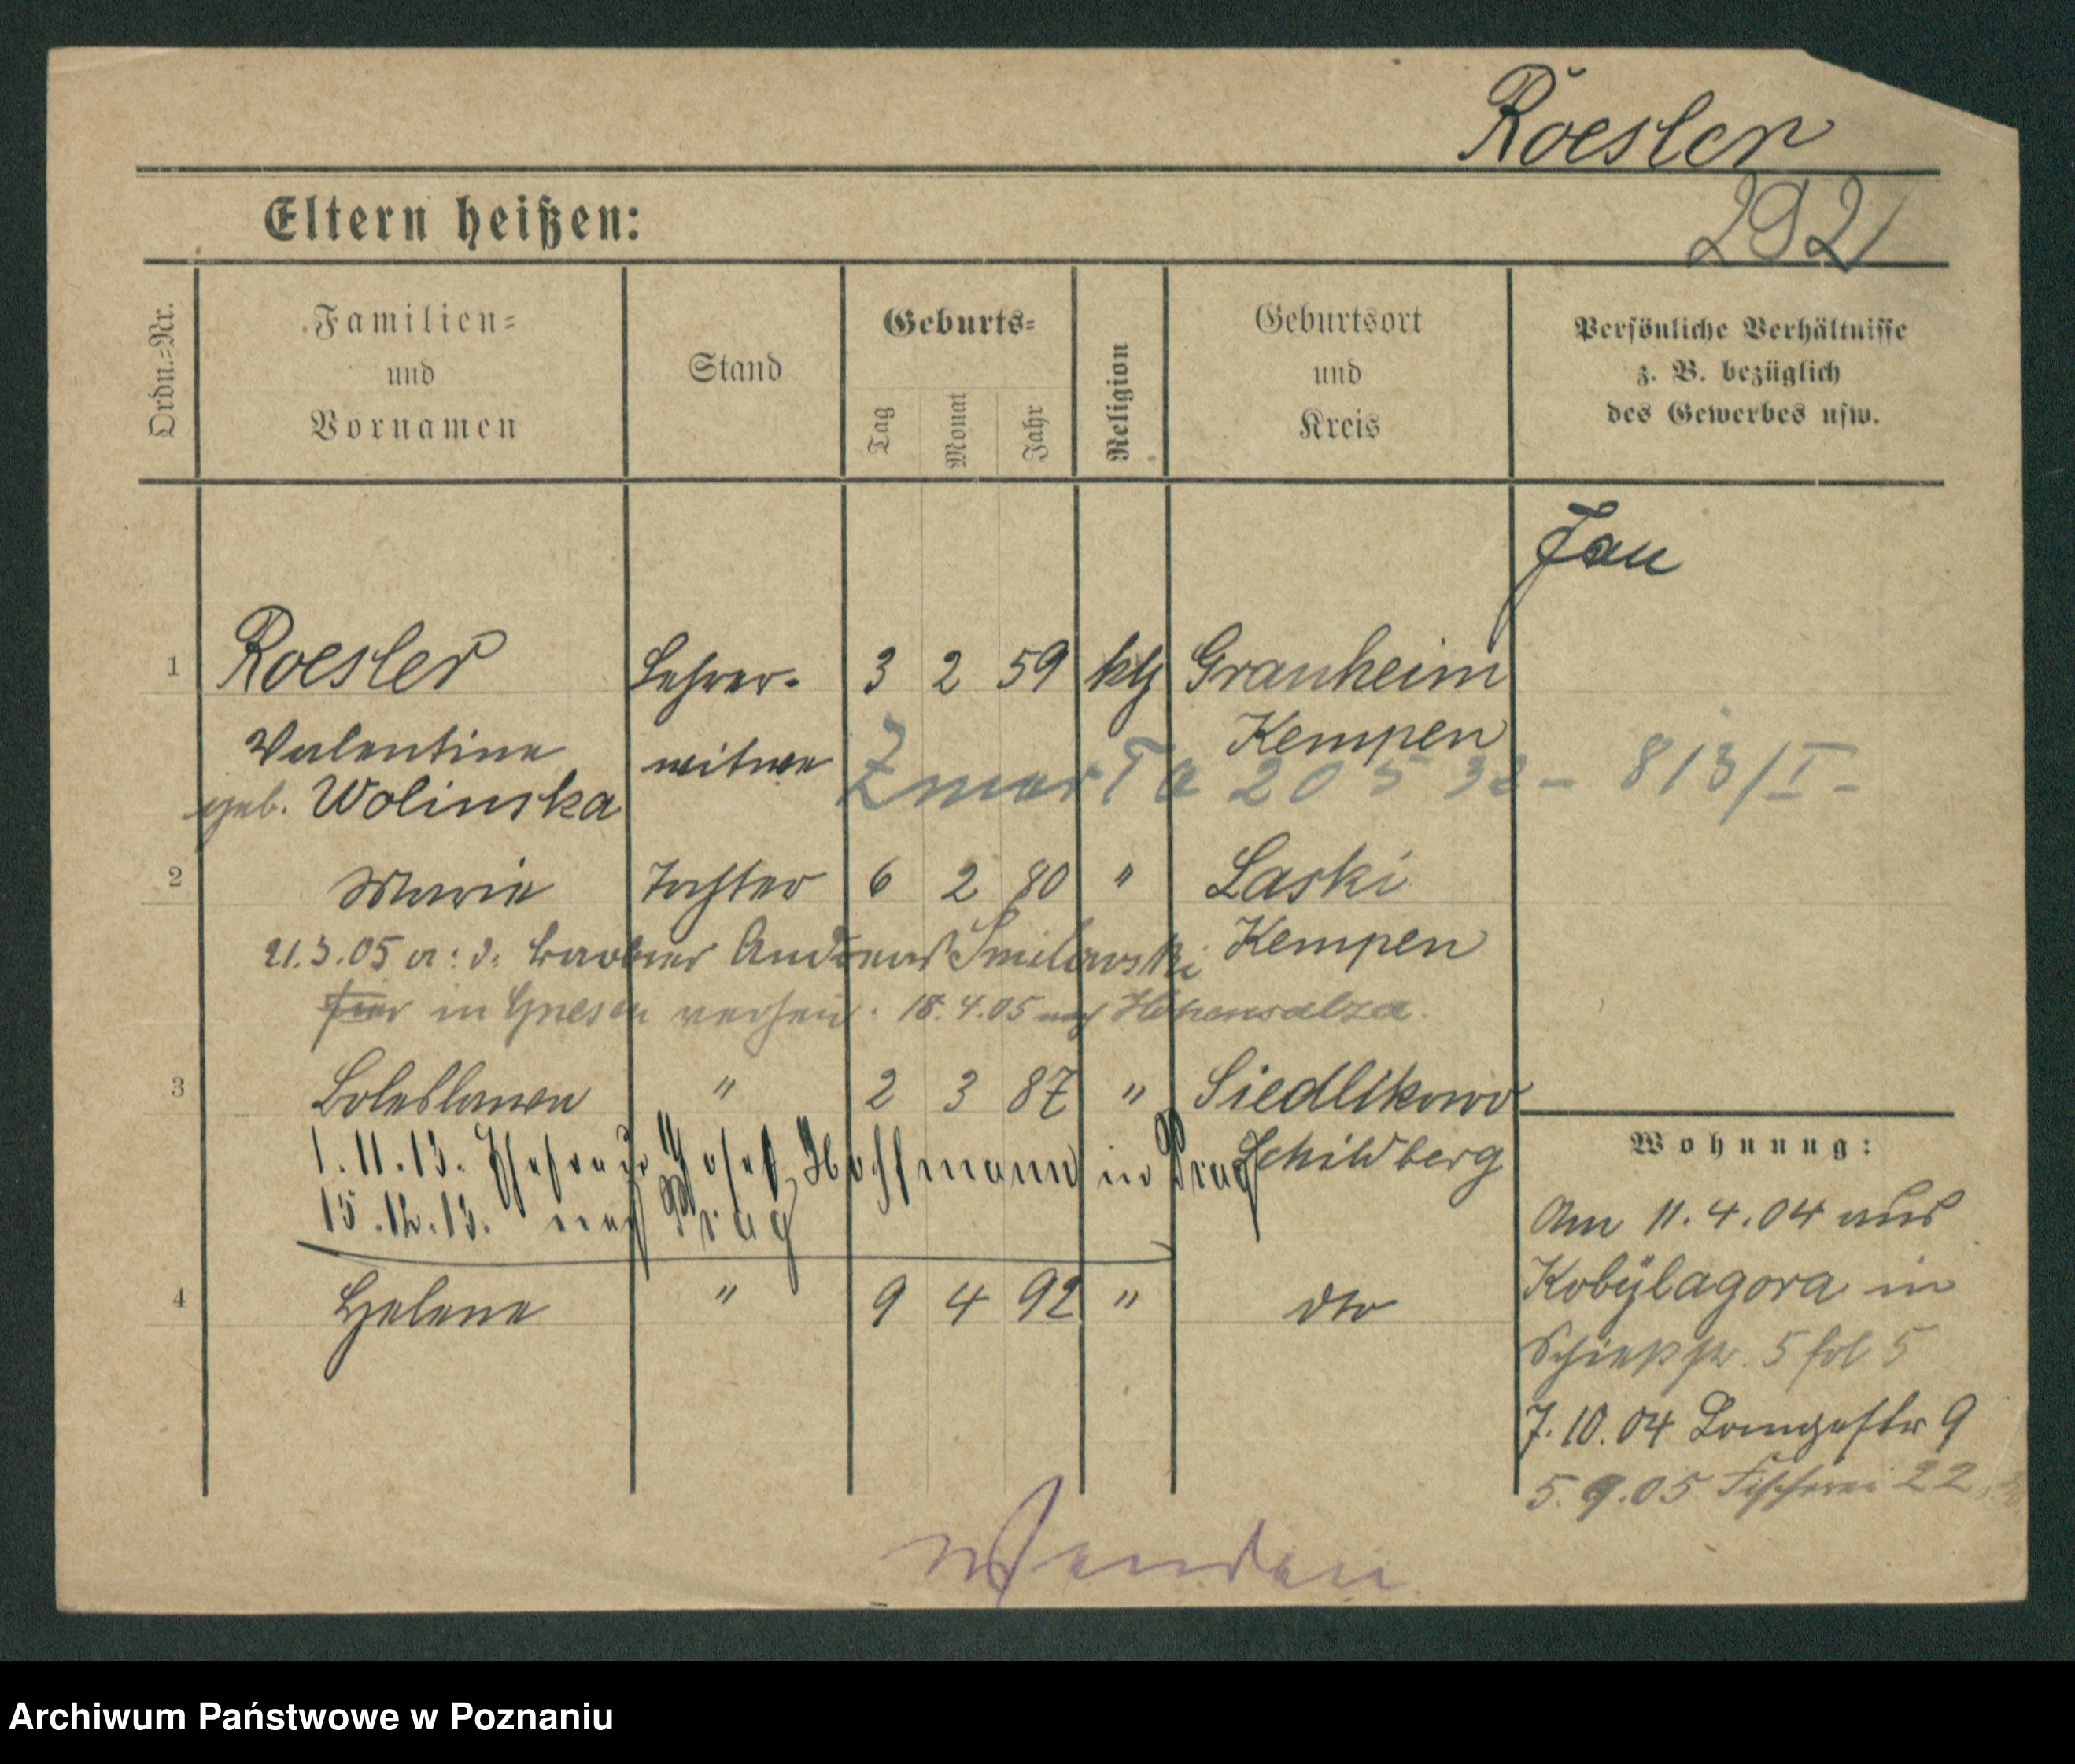 Roesler
292
Eltern heißen:
Ordn.=Nr.
Familien=
und
Vornamen
Stand
Geburts=
Tag
Monat
Jahr
Religion
Geburtsort
und
Kreis
Persönliche Verhältnisse
z. B. bezüglich
des Gewerbes usw.
1 Roesler Lehrer- 3 2 59 kth Granheim
Valentine witwe Kempen
geb. Wolinska
Zmarła 20 5 32 - 813/I -
2 Marie Tochter 6 2 80 " Laski
Kempen
21.3.05 a: d: Andreas Smilowski
hier in Gnesen verheir. 18.4.05 nach Hohensalza.
3 Boleslawa " 2 3 87 " Siedlikowo
Schildberg
1.11.13. Ehefrau Josef Hoffmann in Prag
15.12.13. nach Prag
4 Helene " 9 4 92 " dto
Wohnung:
Am 11.4.04 aus
Kobylagora in
5 fol 5
7.10.04 Langestr 9
5.9.05 Fischerei 22
Wenden
Archiwum Państwowe w Poznaniu